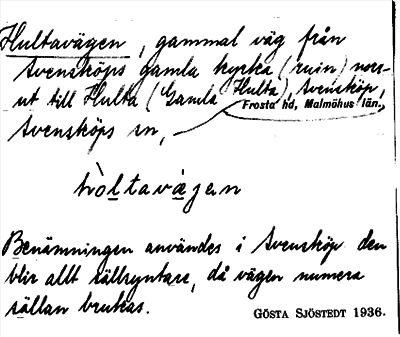 Hultavägen, gammal väg från
Svensköps gamla kyrka (ruin) norr-
ut till Hulta (Gamla Hulta), Svensköp,
Frosta hd, Malmöhus län.
Svensköps sn,
hòltavàgen
Benämningen användes i Svensköp den
blir allt sällsyntare, då vägen numera
sällan brukas.
GÖSTA SJÖSTEDT 1936.